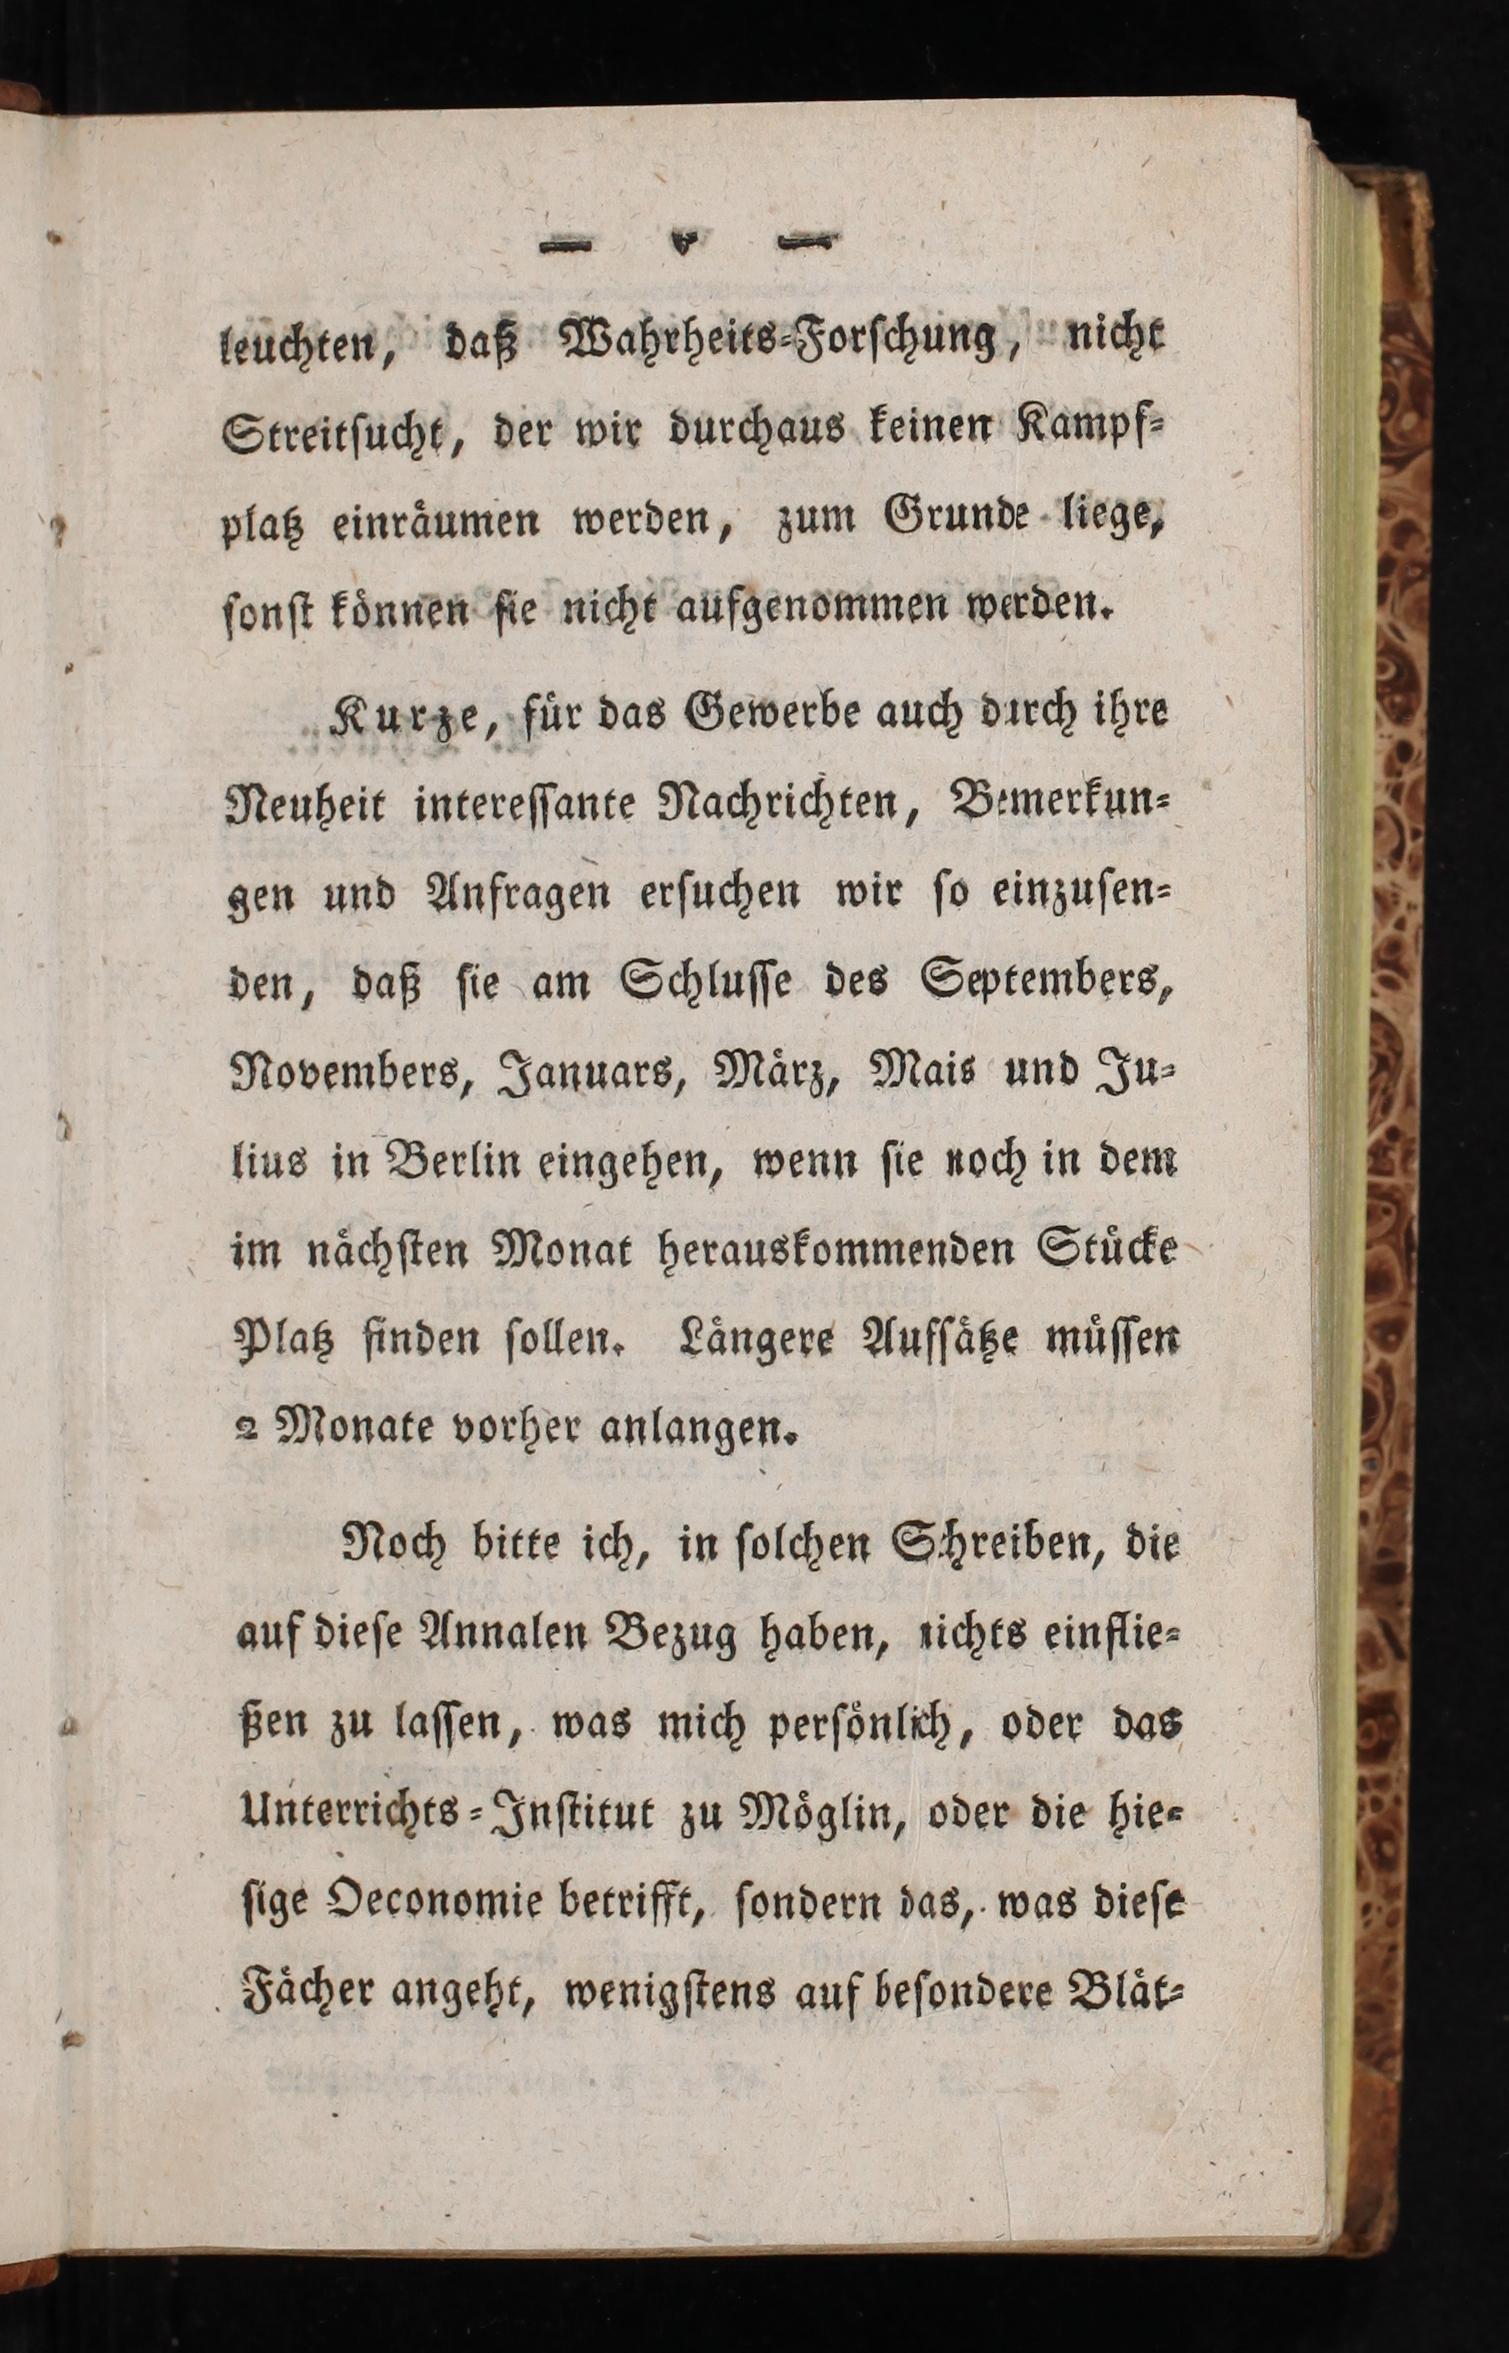 — v —
leuchten, daß Wahrheits-Forschung, nicht
Streitsucht, der wir durchaus keinen Kampf-
platz einräumen werden, zum Grunde liege,
sonst können sie nicht aufgenommen werden.
Kurze, für das Gewerbe auch durch ihre
Neuheit interessante Nachrichten, Bemerkun-
gen und Anfragen ersuchen wir so einzusen-
den, daß sie am Schlusse des Septembers,
Novembers, Januars, März, Mais und Ju-
lius in Berlin eingehen, wenn sie noch in dem
im nächsten Monat herauskommenden Stücke
Platz finden sollen. Längere Aufsätze müssen
2 Monate vorher anlangen.
Noch bitte ich, in solchen Schreiben, die
auf diese Annalen Bezug haben, nichts einflie-
ßen zu lassen, was mich persönlich, oder das
Unterrichts-Institut zu Möglin, oder die hie-
sige Oeconomie betrifft, sondern das, was diese
Fächer angeht, wenigstens auf besondere Blät-